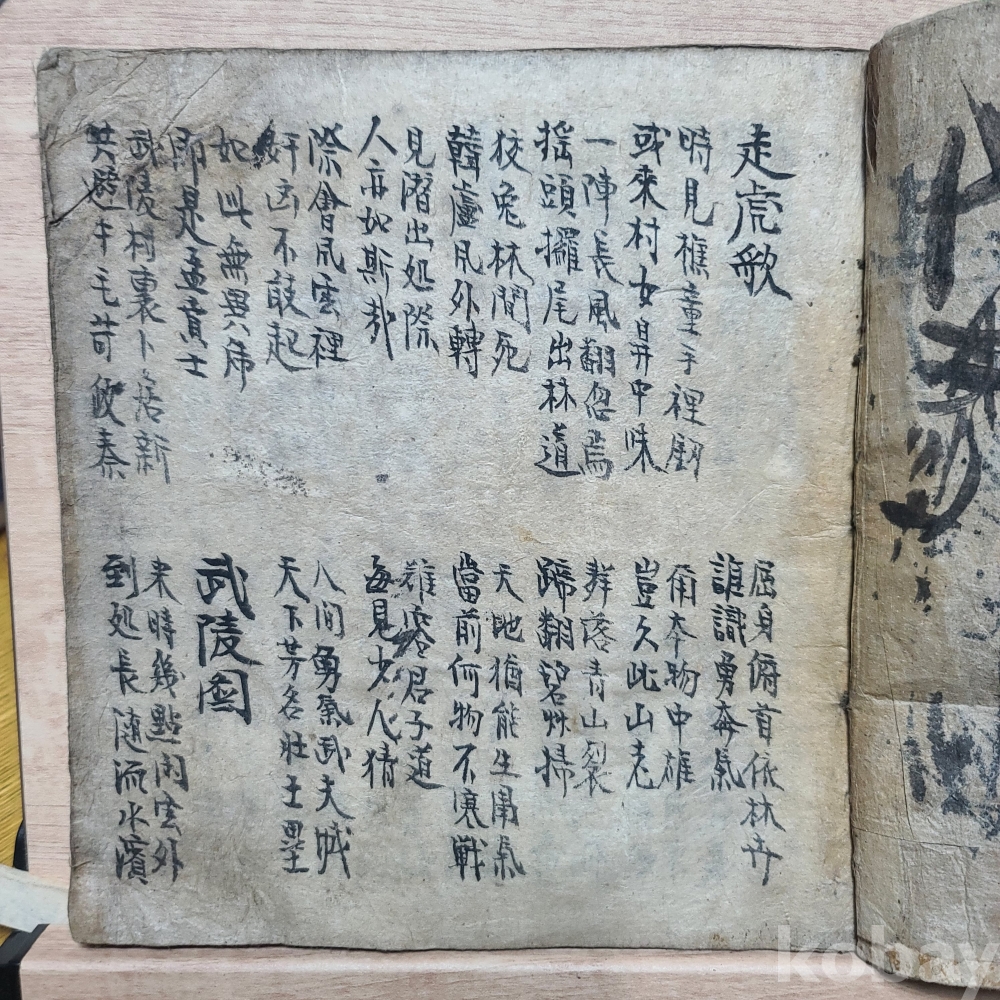 走虎歌
時見樵童手裡劒
或來村女中味
屈身俯首依林卉
誰識勇奔氣
一陣長風翻忽焉
搖頭擺尾出林道
爾本物中雄
豈久此山老
狡兔林間死
韓盧凨外轉
群落青山裂
蹄翻碧艸掃
見潛出処際
人亦如斯哉
天地猶能生肅氣
當前何物不寒戰
際會凨雲裡
奸凶不敢起
雖容君子道
每見少人猜
如此無異
即是孟賁士
人間勇氣武夫城
天下芳名壯士壘
武陵圖
武陵村裏卜居新
共避牛毛苛政秦
來時幾點閑雲外
到処長随流水濱
kobay